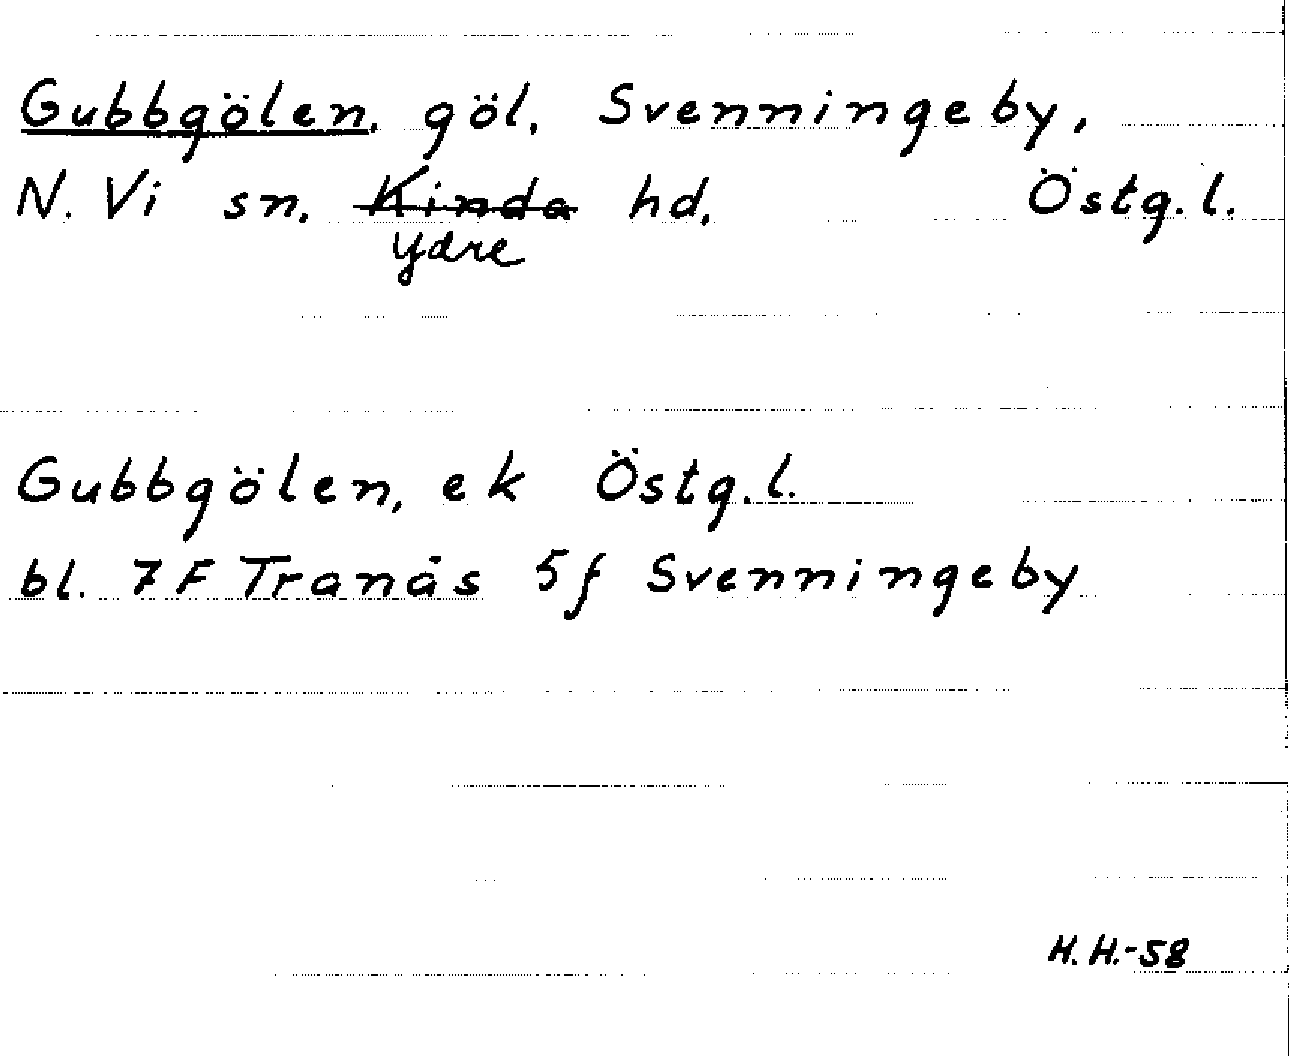 Gubbgölen, göl, Svenningeby,
N. Vi sn. Kinda hd. Östg. l.
Ydre
Gubbgölen, ek Östg. l.
bl. 7 F Tranås 5f Svenningeby
H. H.-58